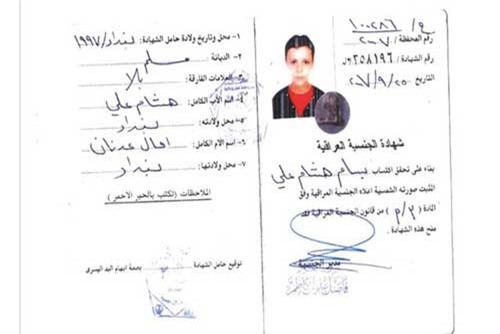 ع/١٠٠٢٨٦
رقم المحفظة / ٢٠٠٧
رقم الشهادة / ٣٥٨١٩٦
التاريخ ٢٠٠٧/٩/٢٥
شهادة الجنسية العراقية
بناء على تحقق اكتساب بسام هشام علي
المثبت صورته الشمسية اعلاه الجنسية العراقية وفق
المادة (٣/م) من قانون الجنسية العراقية لك
منح هذه الشهادة .
مدير الجنسية
١- محل وتاريخ ولادة حامل الشهادة: بغداد/١٩٩٧
٢- الديانة مسلم
العلامات الفارقة: بلا
اسم الأب الكامل: هشام علي
٥- محل ولادته: بغداد
٦- اسم الام الكامل: امال عدنان
٧- محل ولادتها: بغداد
الملاحظات (تكتب بالحبر الأحمر)
توقيع حامل الشهادة
بصمة ابهام اليد اليسرى